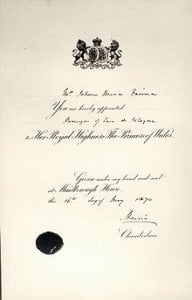 Mr Johann Maria Farina
You are hereby appointed
Purveyor of Eau de Cologne
to Her Royal Highness The Princess of Wales
Given under my hand and seal
at Marlborough House.
this 16th day of May 1870
Chamberlain